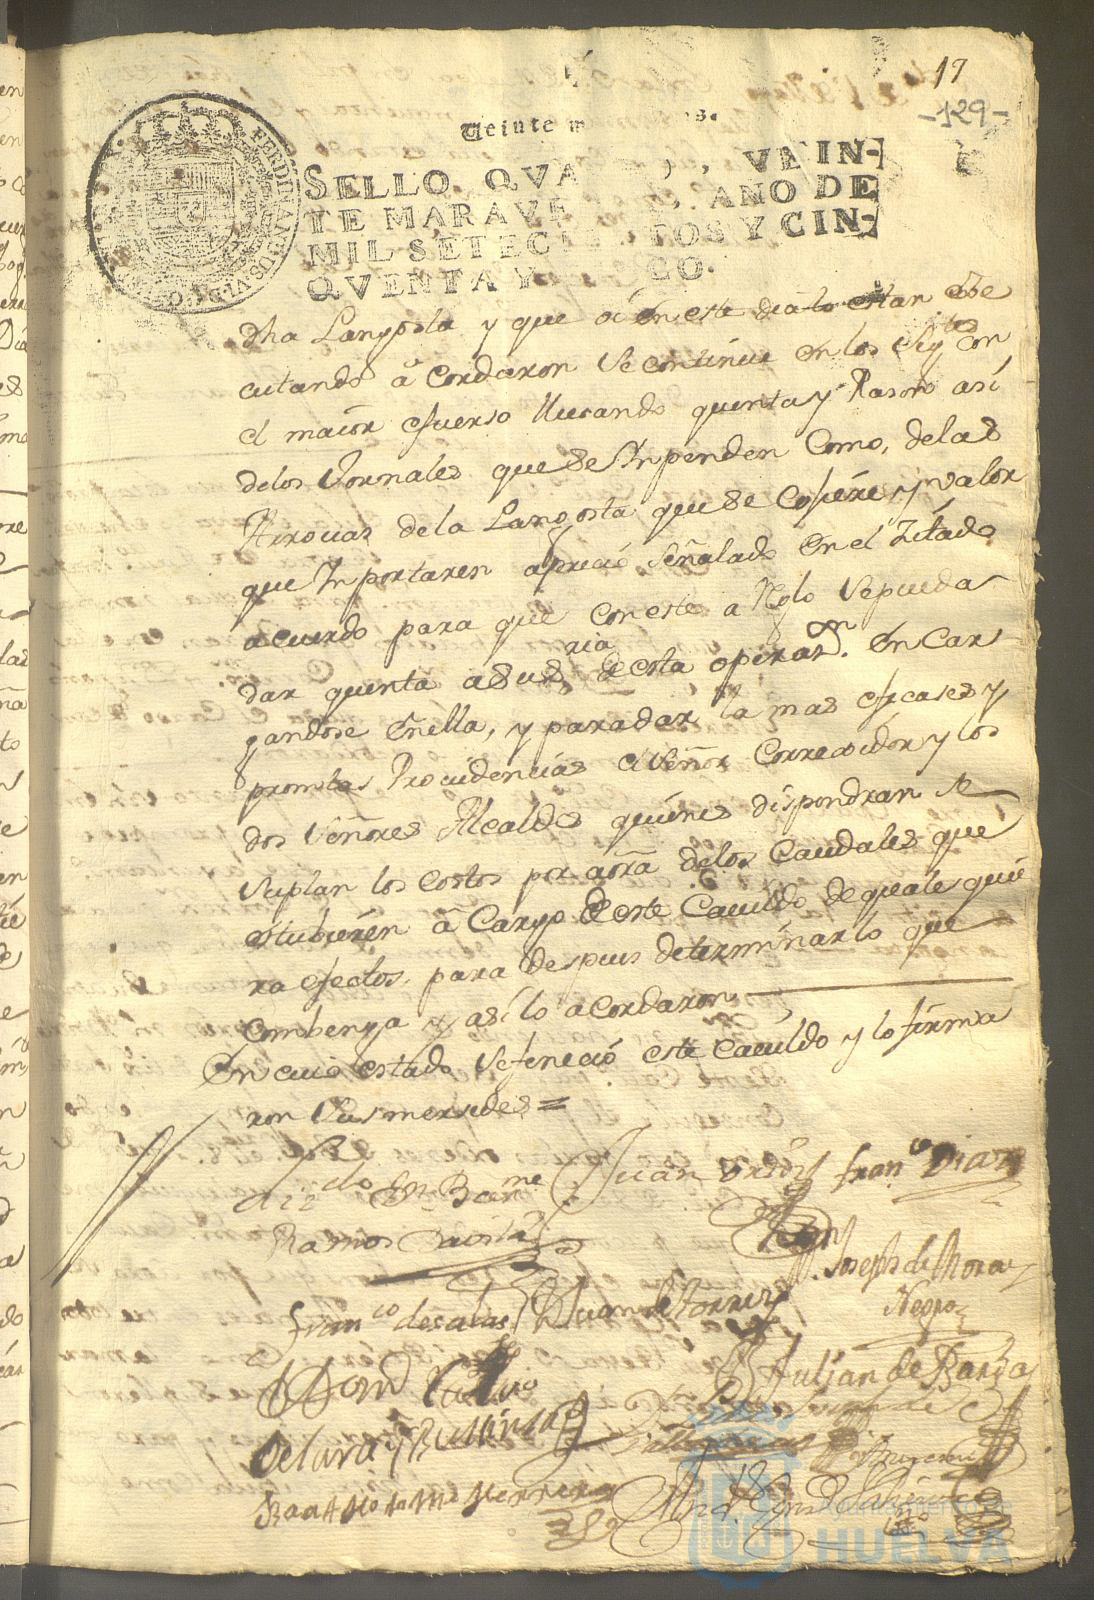 17
-129-
Veinte m s.
SELLO QVA , VEIN-
TE MARAVE , AÑO DE
MIL SETECIE TOS Y CIN-
QVENTA Y CO.
FERDINANDUS VI D G
dha Langosta y que oi en este dia lo estan exe
cutando acordaron se continue en los sigtes con
el maior esfuerso llevando quenta y Rason asi
delos Jornales que se Inpenden Como, delas
Arrovas dela Langosta que se Cojiere y valor
que Inportaren a precio señalado en el Zitado
acuerdo para que con este a Reglo se pueda
dar quenta a su de esta operazn. en Car
gandose en ella, y para dar la mas eficases y
promtas Providencias el señor Correxidor y los
dos señores Alcaldes quienes dispondran se
suplan los costos por aora delos Caudales que
estubieren a Cargo de este Cavildo de quales quie
ra efectos, para despues determinar lo que
Combenga y asi lo acordaron
En cuio estado se feneció este Cavildo y lo firma
ron sus mersedes =
Bme
Ramos Davila
Juan
franco Diaz
Joseph de Mora
Negro
franco de salas
Juan de Torres
Julian de Barza
Don
de Lara y
Herrera
Ayuntamiento de
HUELVA